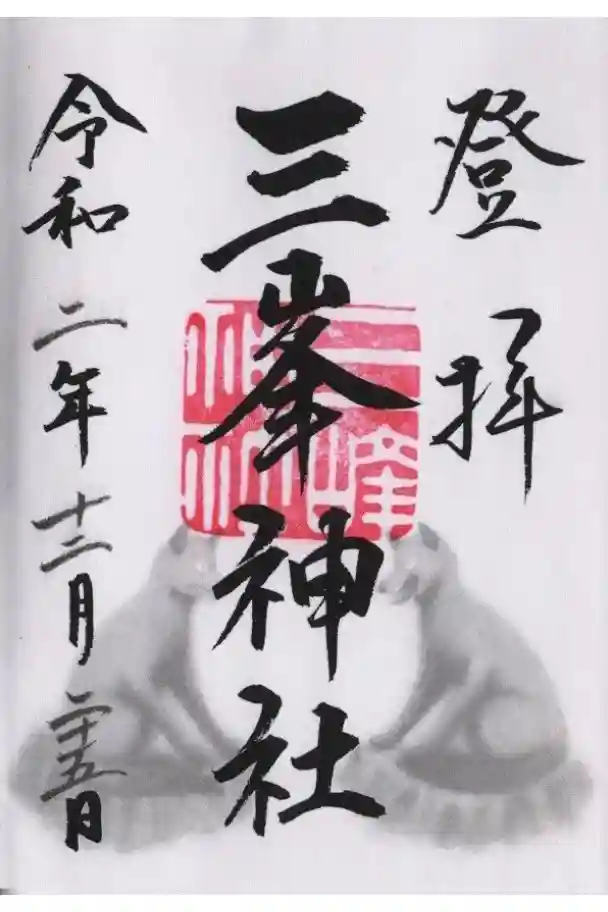 登拝
三峯神社
令和二年十二月二十五日